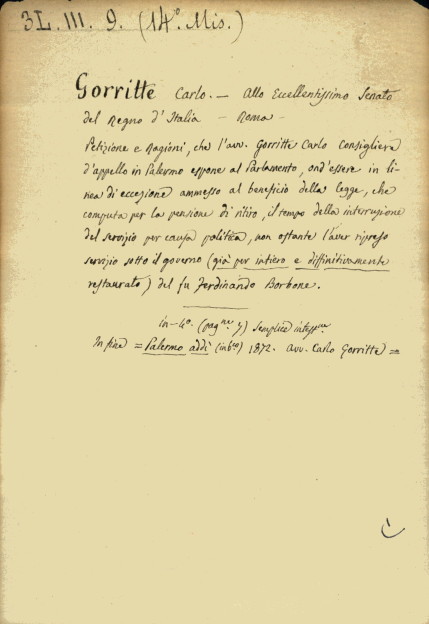 3L. III. 9. (14° Mis.)
Gorritte Carlo. — Allo Eccellentissimo Senato
del Regno d'Italia — Roma —
Petizione e Ragioni, che l'avv. Gorritte Carlo Consigliere
d'appello in Palermo espone al Parlamento, ond'essere in li-
nea di eccezione ammesso al beneficio della legge, che
computa per la pensione di ritiro, il tempo della interruzione
del servizio per causa politica, non ostante l'aver ripreso
servizio sotto il governo (già per intiero e diffinitivamente
restaurato) del fu Ferdinando Borbone.
in-4°. (pagne 7) semplice
In fine = Palermo addì 1872. avv. Carlo Gorritte =